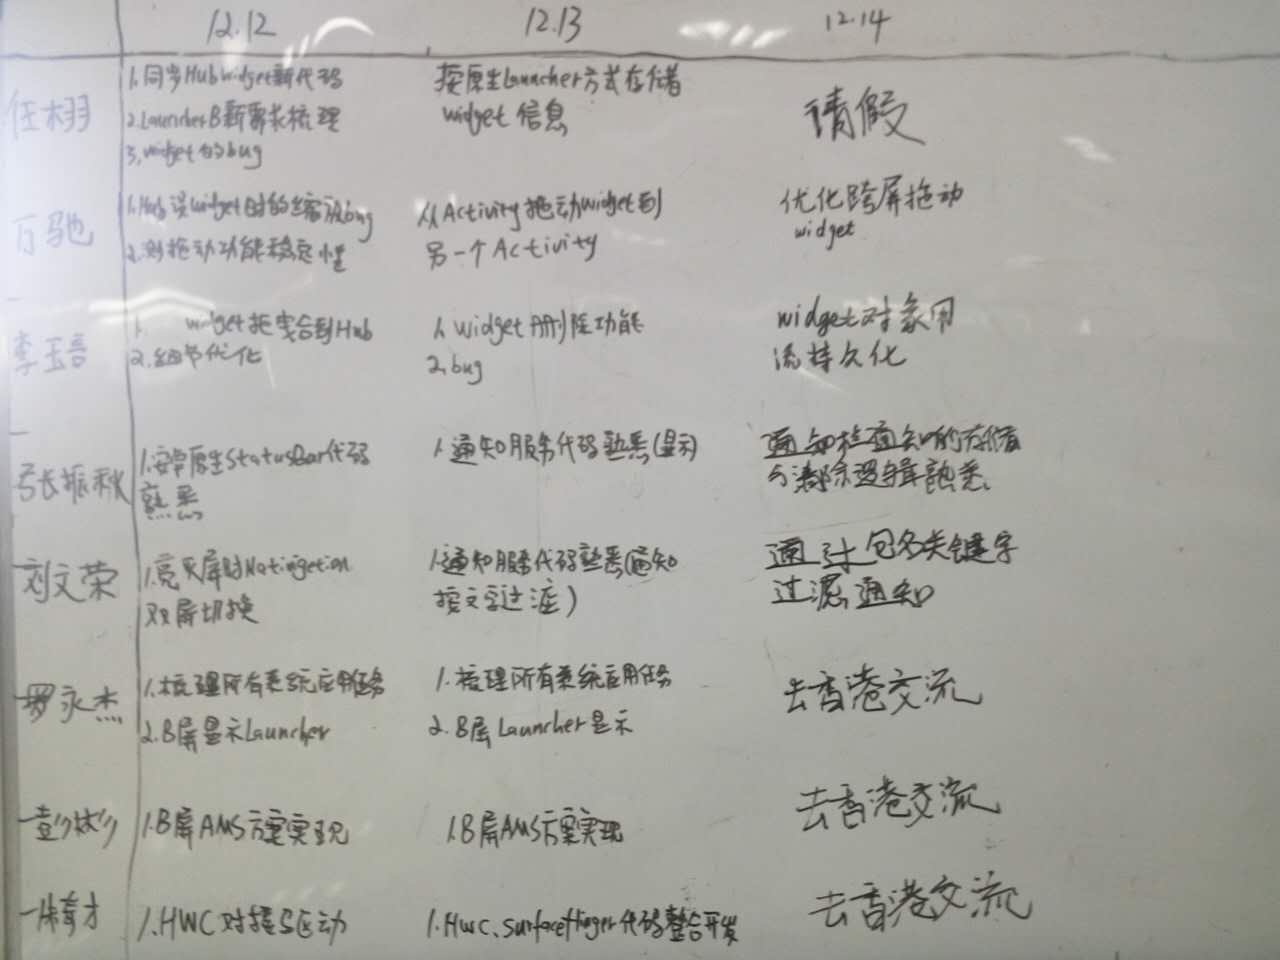 12.12 12.13 12.14
任栩
1.同步Hubwidget新代码
2.LauncherB新需求梳理
3.widget的bug
按原生Launcher方式存储
widget信息
请假
万驰
1.Hub误widget时的缩放bug
2.测拖动功能稳定性
从Activity拖动widget到
另一个Activity
优化跨屏拖动
widget
李玉吾
1. widget拖曳合到Hub
2.细节优化
1.widget删除功能
2.bug
widget对象用
流持久化
张振秋
1.安卓原生StatusBar代码
熟悉
1.通知服务代码熟悉(显示)
通知栏通知的存储
与清除逻辑熟悉
刘文荣
1.亮灭屏时
双屏切换
1.通知服务代码熟悉(通知
按文字过滤)
通过包名关键字
过滤通知
罗永杰
1.梳理所有系统应用任务
2.B屏显示Launcher
1.梳理所有系统应用任务
2.B屏Launcher显示
去香港交流
1.B屏AMS方案实现
1.B屏AMS方案实现
去香港交流
育才
1.HWC对接
1.Hwc、surfaceflinger代码整合开发
去香港交流